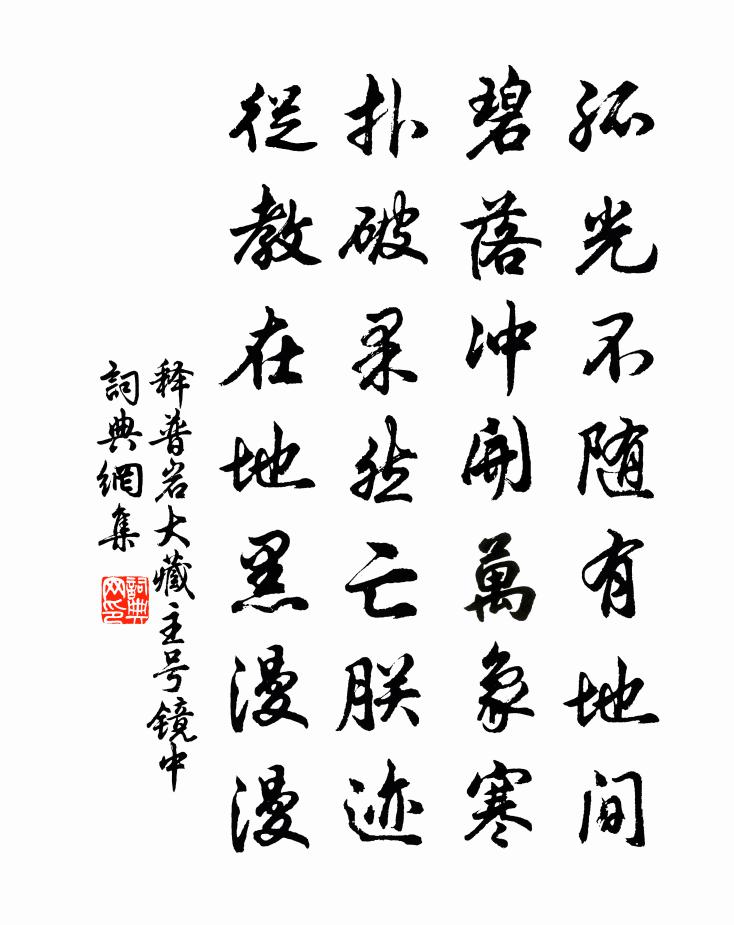 孤光不随有地间
碧落冲開萬象寒
扑破果然亡朕迹
從教在地黑漫漫
释普岩大藏主号镜中
詞典網集
詞典網印